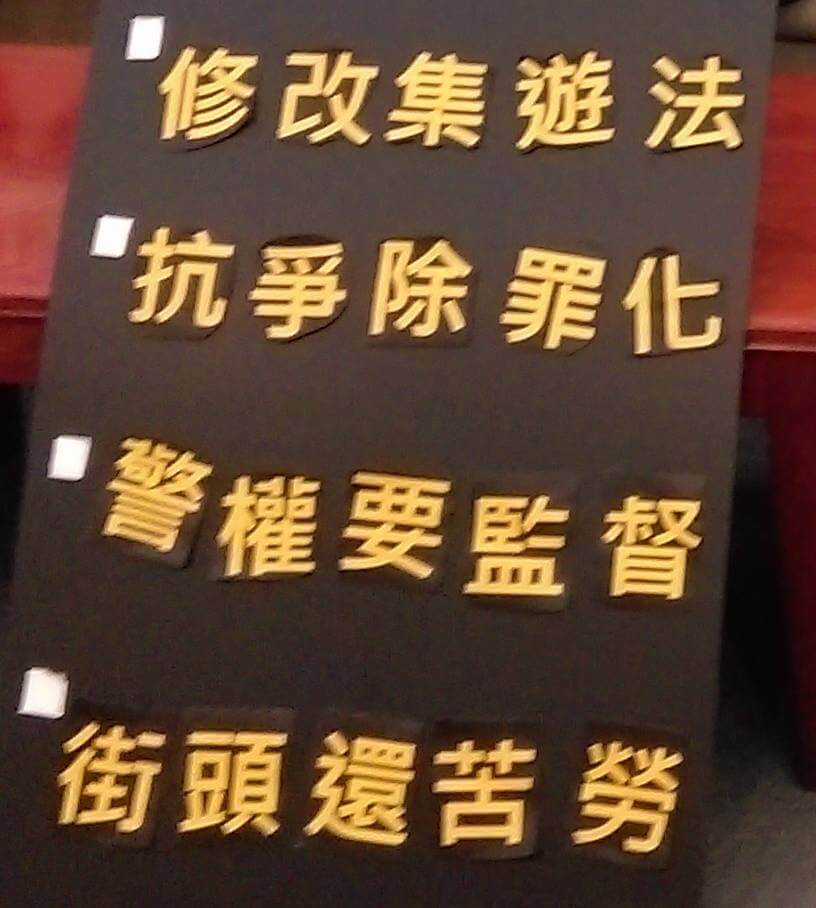 修改集遊法
抗爭除罪化
警權要監督
街頭還苦勞